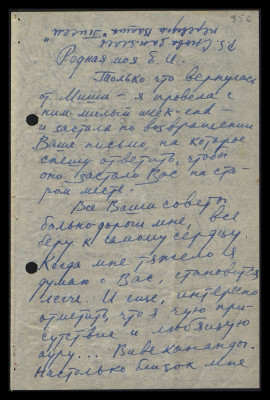 356
P.S. Снова занялась
переводом Ваших "Писем"
Родная моя Е. И.
Только что вернулась
от Миши – я провела с
ним милый week-end –
и застала по возвращении
Ваше письмо, на которое
спешу ответить, чтобы
оно застало Вас на ста-
ром месте.
Все Ваши советы
больно дороги мне, все
беру к самому сердцу.
Когда мне тяжело я
думаю о Вас, становится
легче. И еще, интересно
отметить, что я чую при-
сутствие и любящую
ауру... Вивекананды.
Настолько близок мне